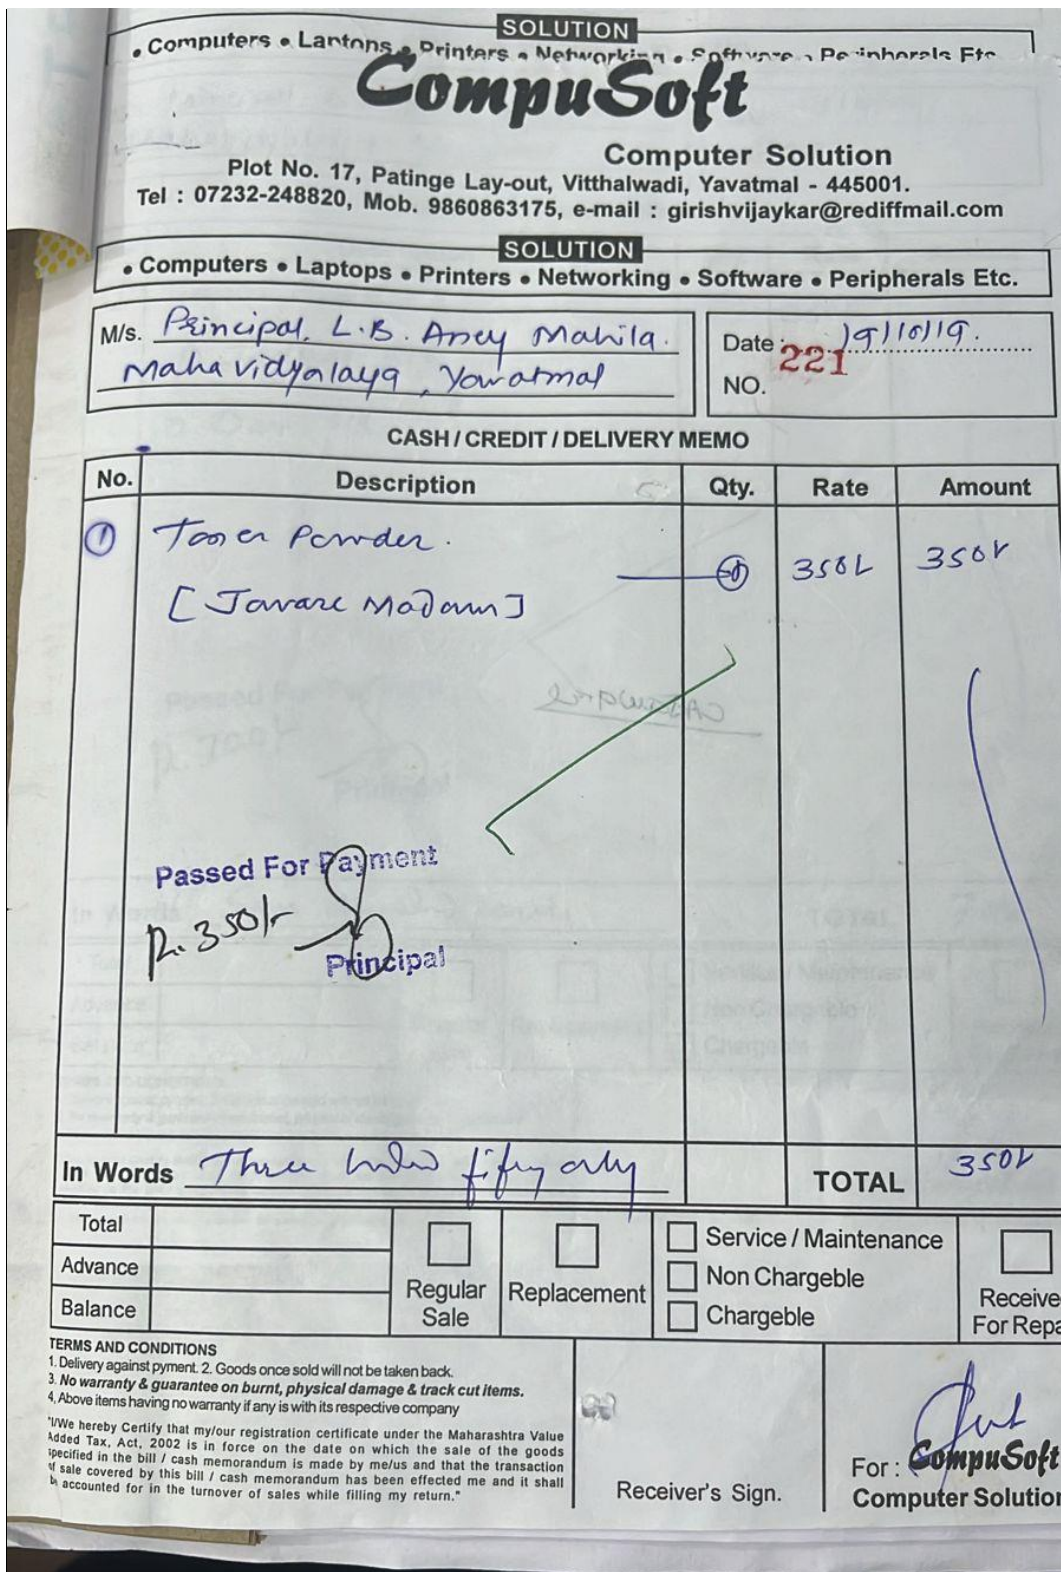 SOLUTION
• Computers • Laptops • Printers • Networking • Software • Peripherals Etc
CompuSoft
Computer Solution
Plot No. 17, Patinge Lay-out, Vitthalwadi, Yavatmal - 445001.
Tel : 07232-248820, Mob. 9860863175, e-mail : girishvijaykar@rediffmail.com
SOLUTION
• Computers • Laptops • Printers • Networking • Software • Peripherals Etc.
M/s. Principal, L.B. Aney Mahila.
Mahavidyalaya, Yavatmal
Date : 19/10/19.
NO. 221
CASH / CREDIT / DELIVERY MEMO
No. Description Qty. Rate Amount
① Toner Powder. 350/- 350/-
[Javare Madam]
Passed For Payment
Rs. 350/-
Principal
In Words Three fifty only TOTAL 350/-
Total
Advance
Balance
Regular Sale
Replacement
Service / Maintenance
Non Chargeble
Chargeble
Receive
For Repa
TERMS AND CONDITIONS
1. Delivery against pyment. 2. Goods once sold will not be taken back.
3. No warranty & guarantee on burnt, physical damage & track cut items.
4. Above items having no warranty if any is with its respective company
"I/We hereby Certify that my/our registration certificate under the Maharashtra Value
Added Tax, Act, 2002 is in force on the date on which the sale of the goods
specified in the bill / cash memorandum is made by me/us and that the transaction
of sale covered by this bill / cash memorandum has been effected me and it shall
be accounted for in the turnover of sales while filling my return."
Receiver's Sign.
For : CompuSoft
Computer Solution